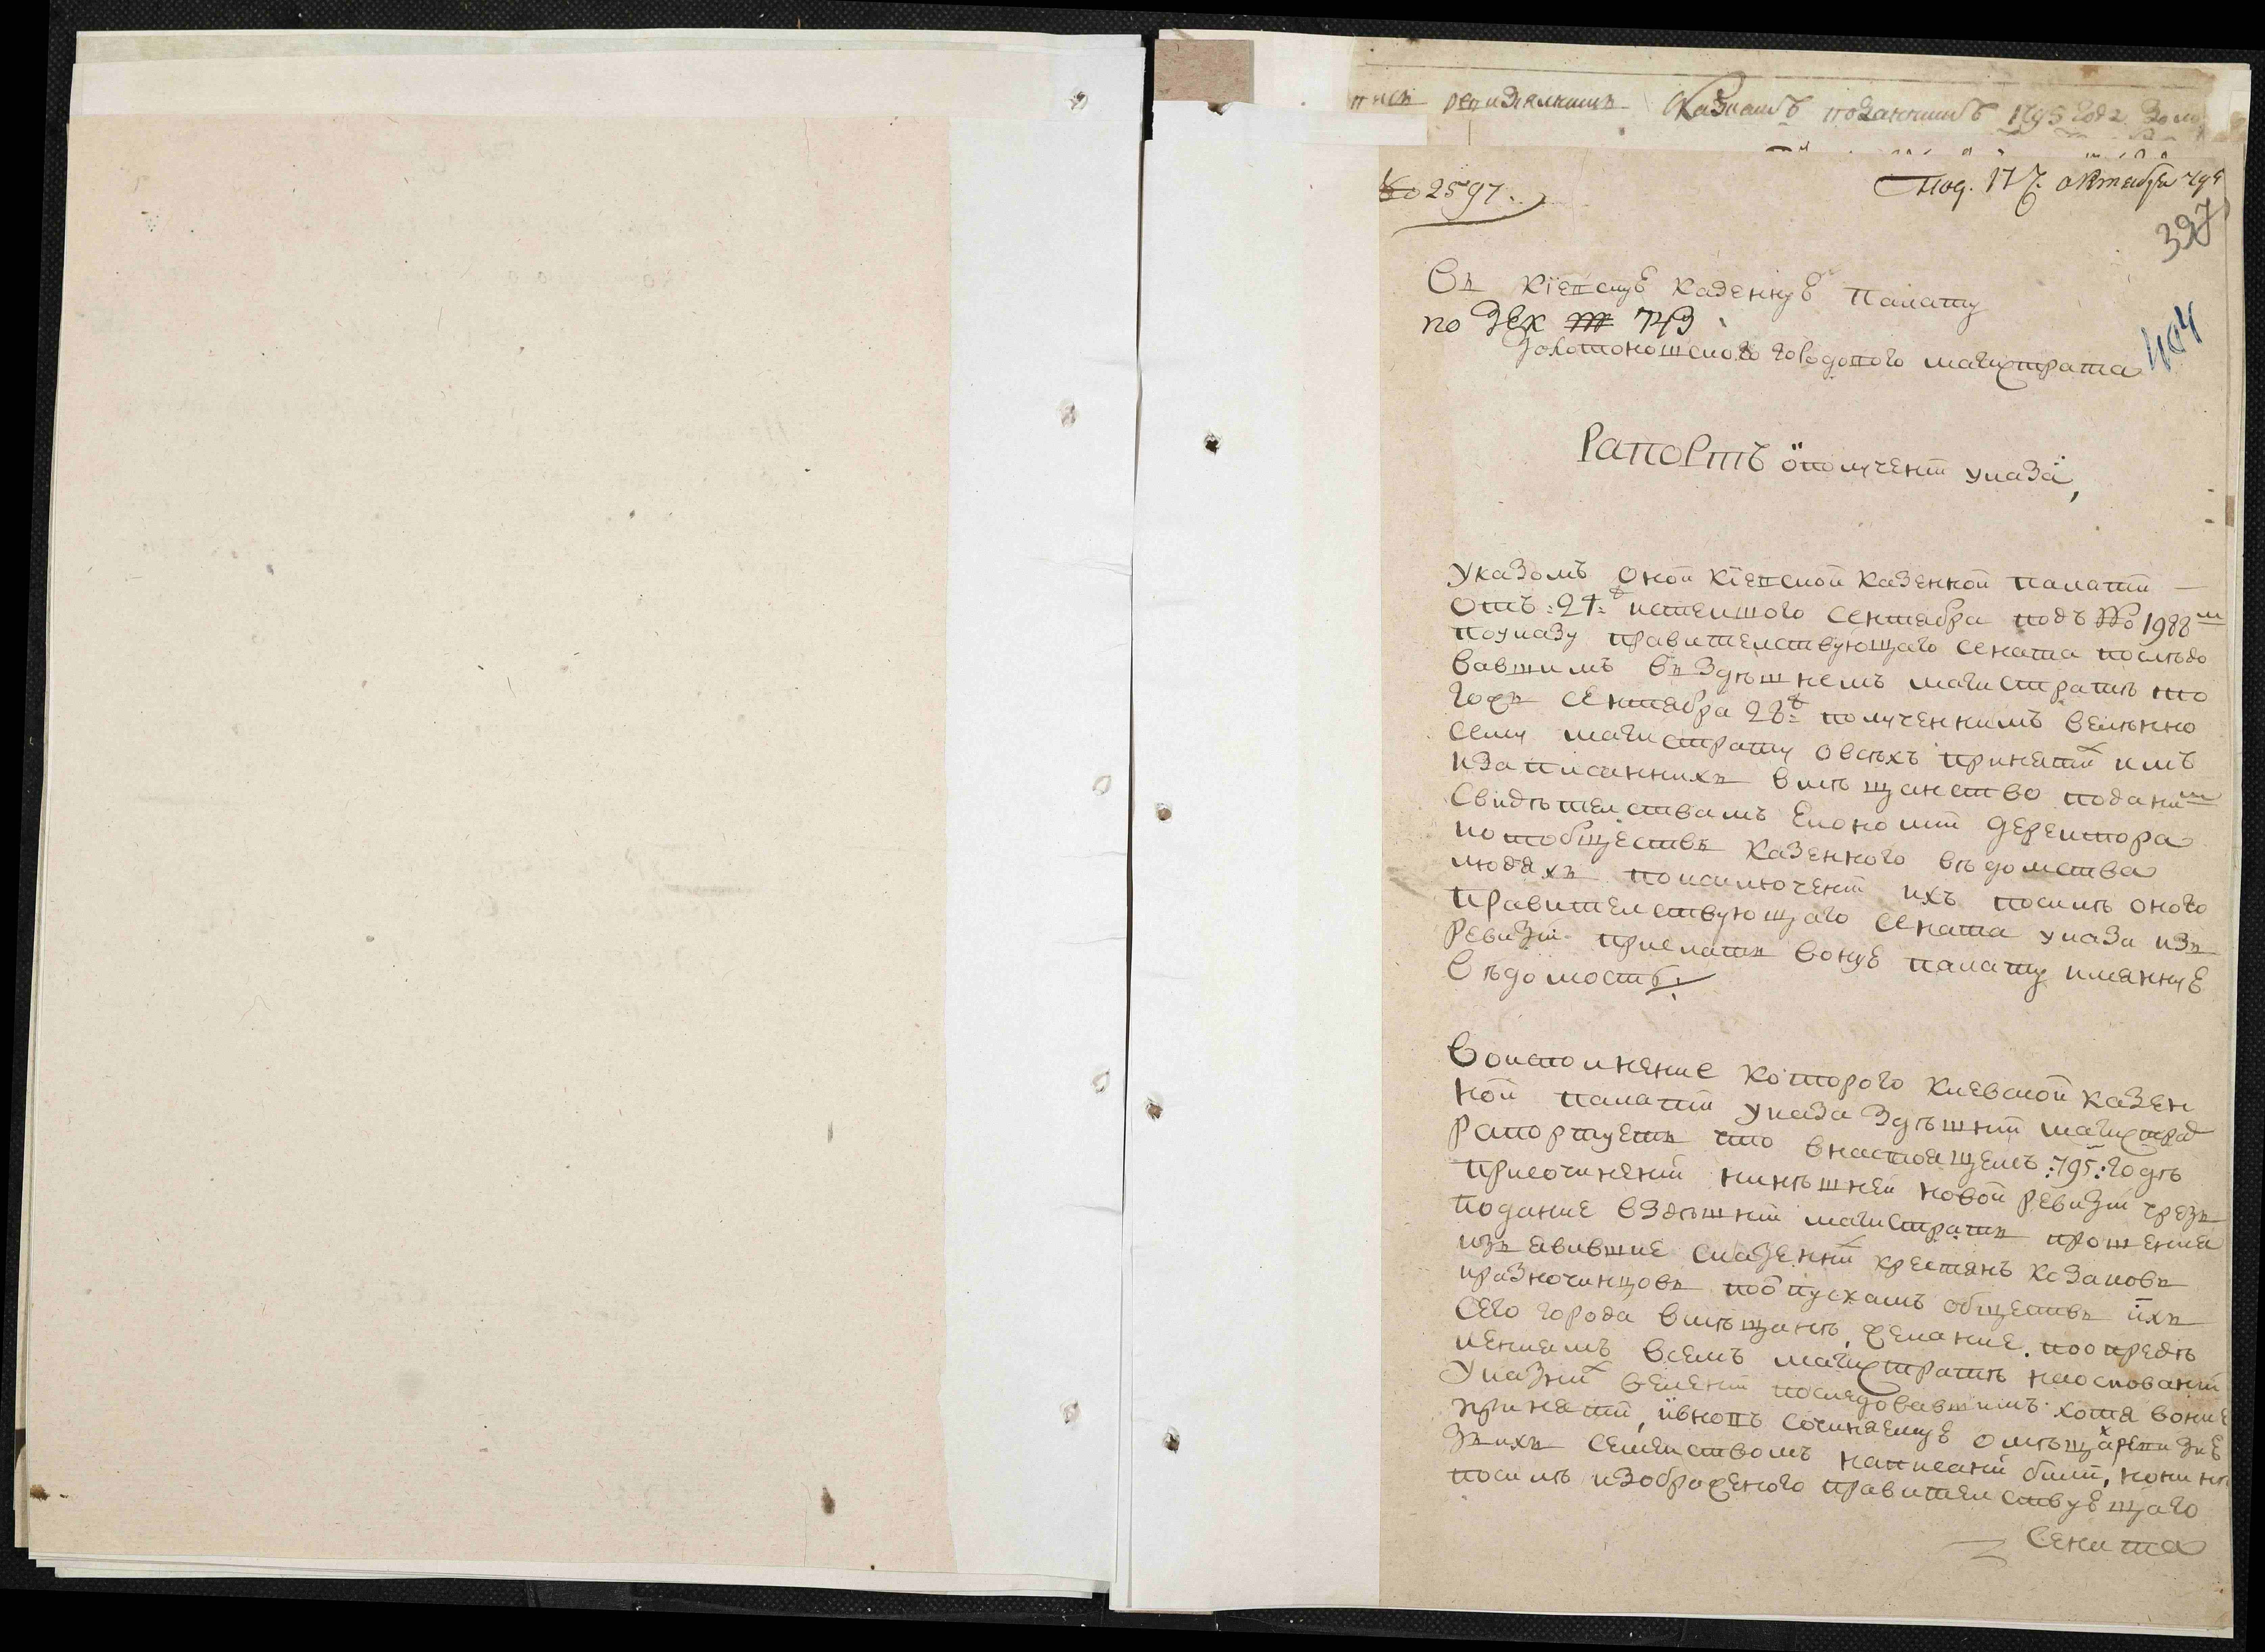 ревизскимъ сказкамъ поданнимъ 1795 года
№ 2597.
Под. 17 октября 795
397
Въ Кіевскую казенную палату
по 743
404
Золотоношского городового магистрата
Рапортъ ополученіи указа,
Указомъ оной кіевской казенной палати
отъ: 21: истекшого сентября подъ № 1988м
поуказу правителствующаго сената послѣдо
вавшимъ въ здѣшнемъ магистратѣ
сентября 28 полученнимъ велѣнно
сему магистрату овсѣхъ принятих имъ
изаписаннихъ вмѣщанство поданим
Свидѣтелствамъ економіи деректора
иотобществъ казенного вѣдомства
людяхъ поисключеніи ихъ посилѣ оного
правителствующаго сената указа изъ
ревизіи прислать воную палату имянную
вѣдомость.
Воисполнение которого киевской казен
ной палати указа здѣшній магистрат
рапортуетъ что внастоящемъ :795: годѣ
присочиненіи нинѣшней новой ревизіи чрезъ
подание вздѣшній магистратъ прошения
изъявившие сказенних крестянъ козаковъ
иразночинцовъ поотпускамъ обществъ ихъ
сего города вмѣщанѣ, желание. поопредѣ
лениямъ всемъ магистратѣ наосновании
Указних велений последовавшимъ хотя воние
приняти, ивновъ сочиняемую омѣщанх ревизию
зъихъ семействомъ написани били, нонинѣ
посилѣ изображеного правителствующаго
Сената